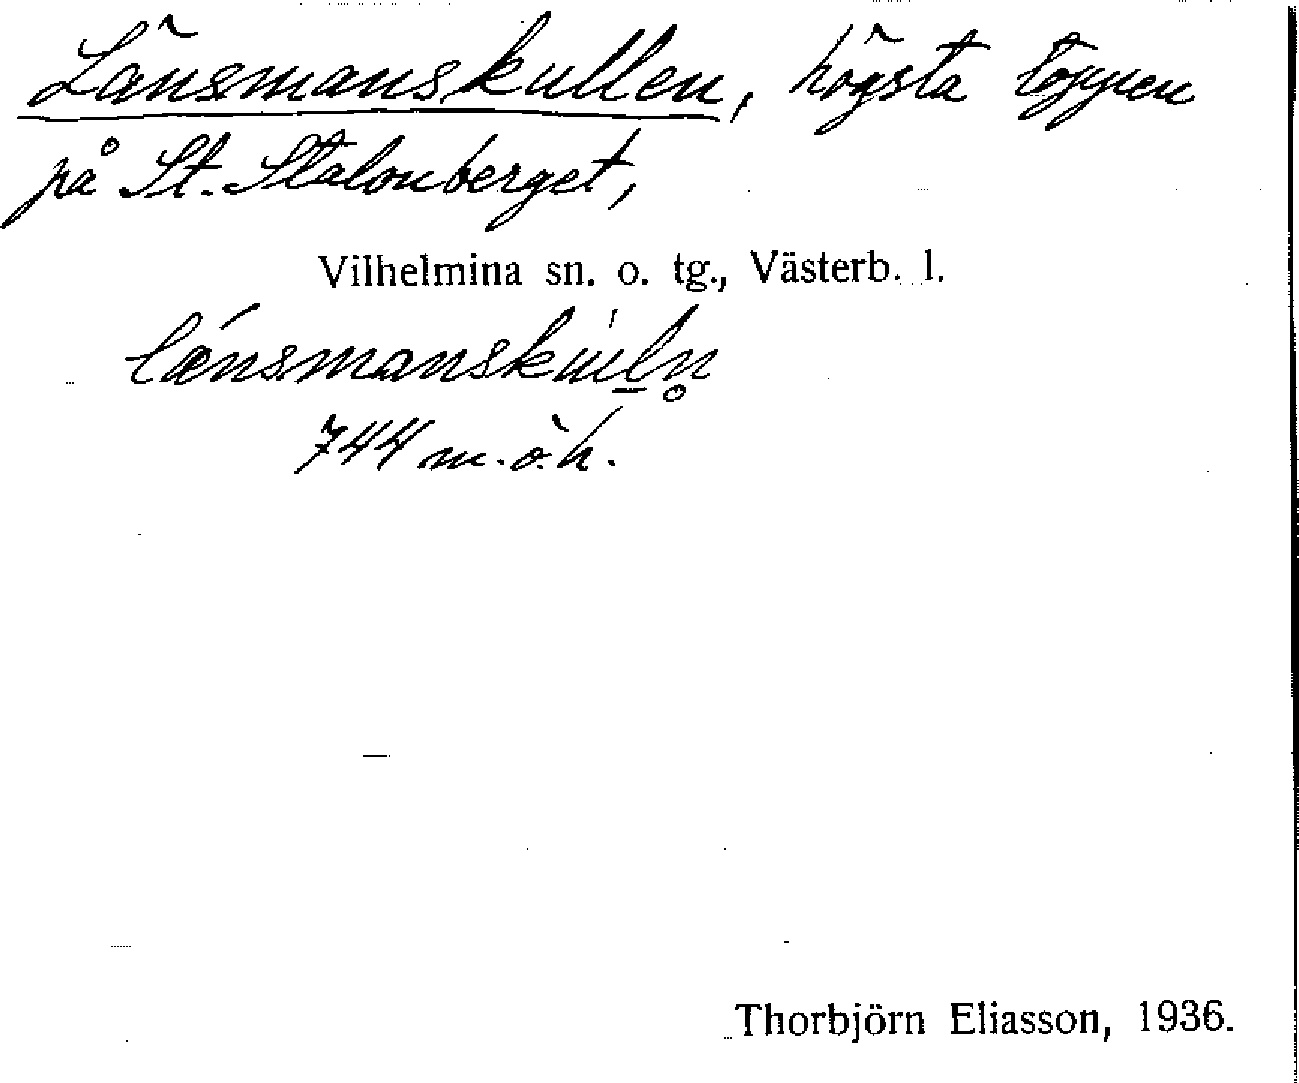 Länsmanskullen, högsta toppen
på St. Stalonberget,
Vilhelmina sn. o. tg., Västerb. l.
lǽnsmanskùl̠n̥
744 m.ö.h.
Thorbjörn Eliasson, 1936.